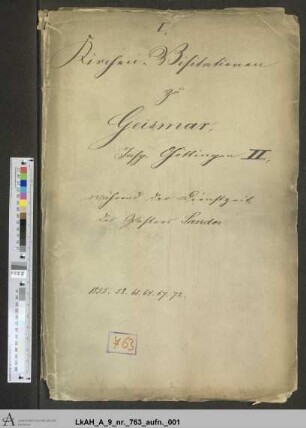 I.
Kirchen-Visitationen
zu
Geismar,
Insp. Göttingen II,
während der Dienstzeit
des Pastors Sander
1855. 58. 61. 64. 67. 72.
763
LkAH_A_9_nr._763_aufn._001